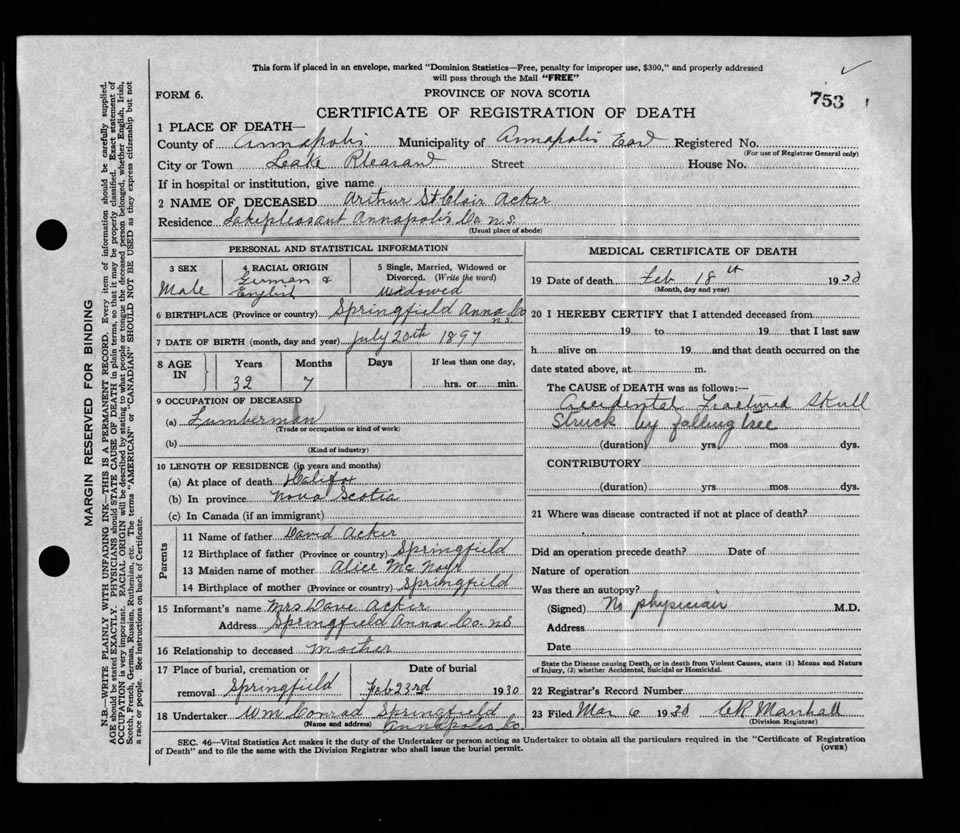 This form if placed in an envelope, marked "Dominion Statistics—Free, penalty for improper use, $300," and properly addressed
will pass through the Mail "FREE"
FORM 6. PROVINCE OF NOVA SCOTIA 753
CERTIFICATE OF REGISTRATION OF DEATH
1 PLACE OF DEATH—
County of Annapolis Municipality of Annapolis East Registered No.
(For use of Registrar General only)
City or Town Lake Pleasant Street House No.
If in hospital or institution, give name
2 NAME OF DECEASED Arthur St Clair Acker
Residence Lakepleasant Annapolis Co. N.S.
(Usual place of abode)
PERSONAL AND STATISTICAL INFORMATION
3 SEX Male
4 RACIAL ORIGIN German & English
5 Single, Married, Widowed or Divorced. (Write the word) Widowed
6 BIRTHPLACE (Province or country) Springfield Anna Co N.S.
7 DATE OF BIRTH (month, day and year) July 20th 1897
8 AGE IN Years 32 Months 7 Days If less than one day, hrs. or min.
9 OCCUPATION OF DECEASED
(a) Lumberman
(Trade or occupation or kind of work)
(b)
(Kind of industry)
10 LENGTH OF RESIDENCE (in years and months)
(a) At place of death Halifax
(b) In province Nova Scotia
(c) In Canada (if an immigrant)
Parents
11 Name of father David Acker
12 Birthplace of father (Province or country) Springfield
13 Maiden name of mother Alice McNayr
14 Birthplace of mother (Province or country) Springfield
15 Informant's name Mrs Dave Acker
Address Springfield Anna Co. N.S.
16 Relationship to deceased Mother
17 Place of burial, cremation or removal Springfield
Date of burial Feb 23rd 1930
18 Undertaker Wm Conrad Springfield
(Name and address) Annapolis Co.
MEDICAL CERTIFICATE OF DEATH
19 Date of death Feb 18th 19
(Month, day and year)
20 I HEREBY CERTIFY that I attended deceased from
19 to 19 that I last saw
h alive on 19 and that death occurred on the
date stated above, at m.
The CAUSE of DEATH was as follows:—
Accidental Fractured Skull
Struck by falling tree
(duration) yrs mos dys.
CONTRIBUTORY
(duration) yrs mos dys.
21 Where was disease contracted if not at place of death?
Did an operation precede death? Date of
Nature of operation
Was there an autopsy?
(Signed) No physician M.D.
Address
Date
State the Disease causing Death, or in death from Violent Causes, state (1) Means and Nature
of Injury, (2) whether Accidental, Suicidal or Homicidal.
22 Registrar's Record Number
23 Filed Mar 6 1930 Marshall
(Division Registrar)
SEC. 46—Vital Statistics Act makes it the duty of the Undertaker or person acting as Undertaker to obtain all the particulars required in the "Certificate of Registration
of Death" and to file the same with the Division Registrar who shall issue the burial permit. (OVER)
MARGIN RESERVED FOR BINDING
N.B.—WRITE PLAINLY WITH UNFADING INK—THIS IS A PERMANENT RECORD. Every item of information should be carefully supplied.
AGE should be stated EXACTLY. PHYSICIANS should STATE CAUSE OF DEATH in plain terms, so that it may be properly classified. Exact statement of
OCCUPATION is very important. RACIAL ORIGIN will be described by stating to what people or tongue the deceased person belonged, whether English, Irish,
Scotch, French, German, Russian, Ruthenian, etc. The terms "AMERICAN" or "CANADIAN" SHOULD NOT BE USED as they express citizenship but not
a race or people. See instructions on back of Certificate.